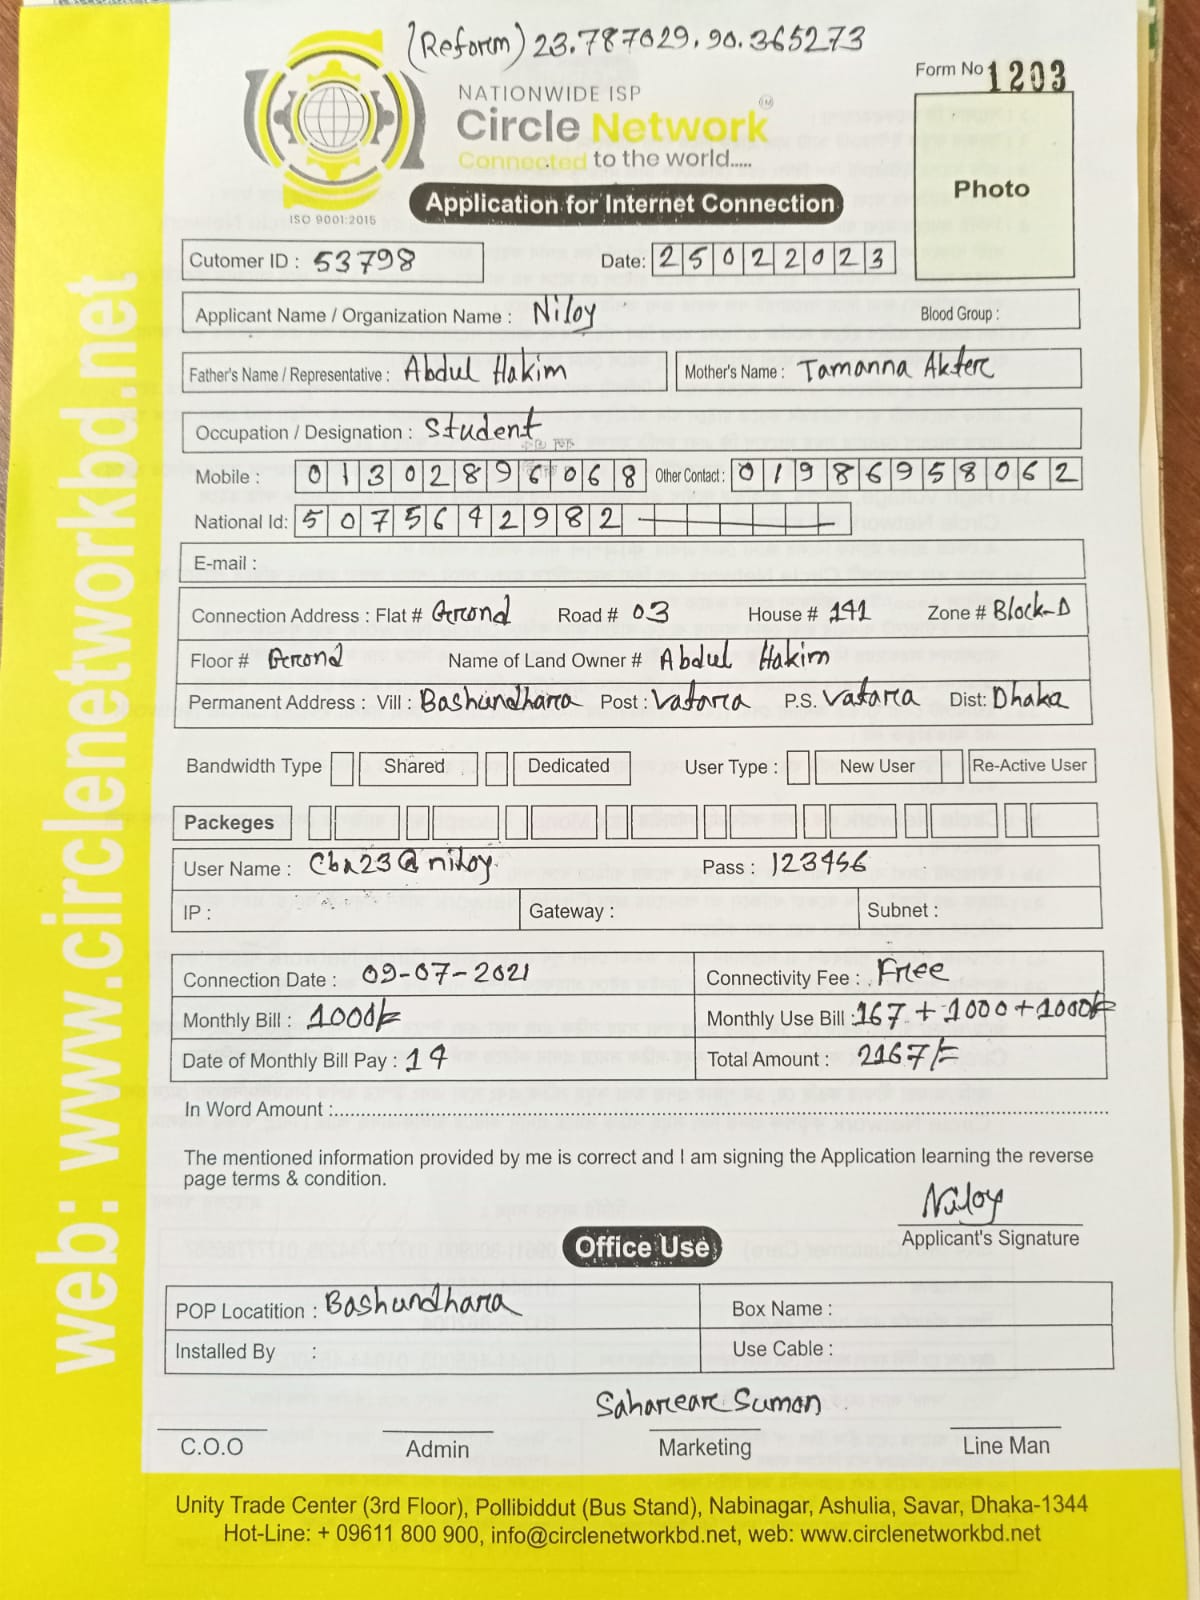 (Reform) 23.787029, 90.365273
Form No 1203
NATIONWIDE ISP
Circle Network
Connected to the world.....
ISO 9001:2015
Application for Internet Connection
Photo
Cutomer ID : 53798 Date: 25022023
Applicant Name / Organization Name : Niloy Blood Group :
Father's Name / Representative : Abdul Hakim Mother's Name : Tamanna Akter
Occupation / Designation : Student
Mobile : 01302896068 Other Contact : 01986958062
National Id: 5075642982
E-mail :
Connection Address : Flat # Grond Road # 03 House # 141 Zone # Block-D
Floor # Grond Name of Land Owner # Abdul Hakim
Permanent Address : Vill : Bashundhara Post : Vatara P.S. Vatara Dist: Dhaka
Bandwidth Type Shared Dedicated User Type : New User Re-Active User
Packeges
User Name : Cbn23@niloy Pass : 123456
IP : Gateway : Subnet :
Connection Date : 09-07-2021 Connectivity Fee : Free
Monthly Bill : 1000/= Monthly Use Bill : 167+1000+1000/=
Date of Monthly Bill Pay : 14 Total Amount : 2167/=
In Word Amount :
The mentioned information provided by me is correct and I am signing the Application learning the reverse
page terms & condition.
Niloy
Applicant's Signature
Office Use
POP Locatition : Bashundhara Box Name :
Installed By : Use Cable :
Sahareare Suman
C.O.O Admin Marketing Line Man
Unity Trade Center (3rd Floor), Pollibiddut (Bus Stand), Nabinagar, Ashulia, Savar, Dhaka-1344
Hot-Line: + 09611 800 900, info@circlenetworkbd.net, web: www.circlenetworkbd.net
web: www.circlenetworkbd.net